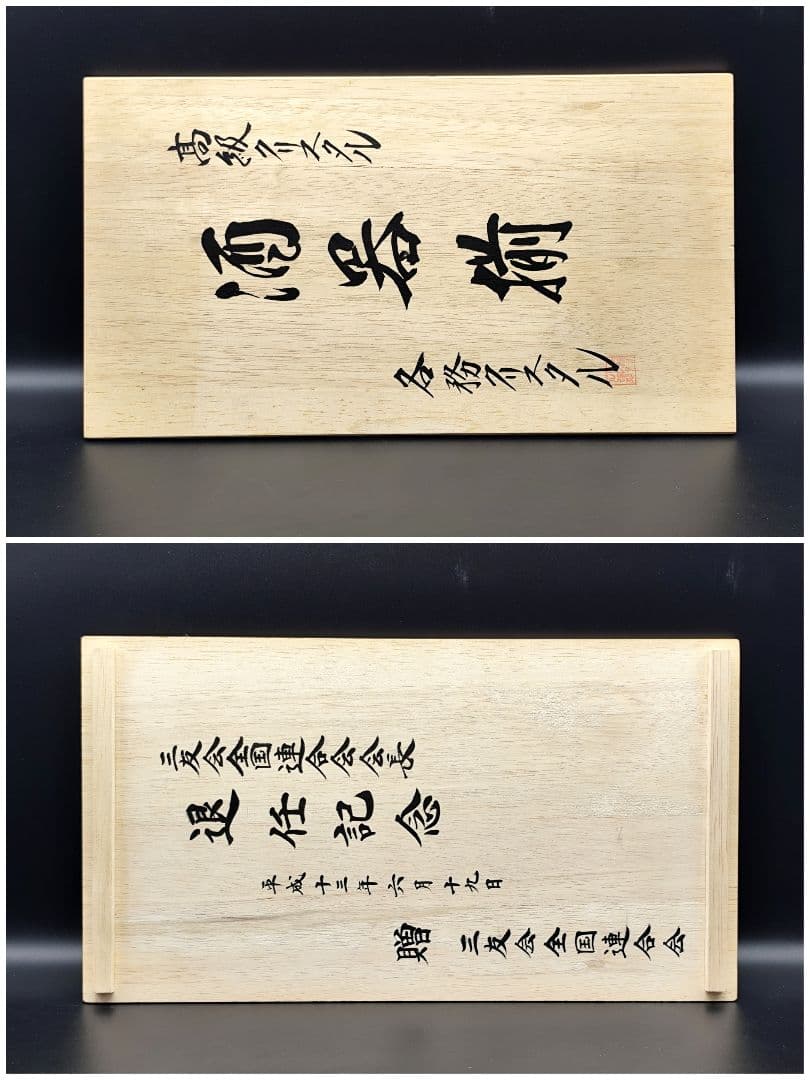 高級クリスタル
酒器揃
各務クリスタル
三友会全国連合会会長
退任記念
平成十三年六月十九日
贈 三友会全国連合会